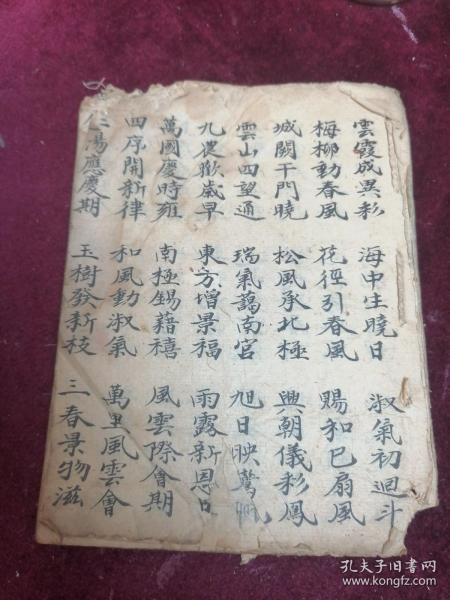 雲霞成異彩　海中生曉日　淑氣初迴斗
梅柳動春風　花徑引春風　賜和已扇風
城闕千門曉　松風承北極　興朝儀彩鳳
雲山四望通　瑞氣藹南宮　旭日映鸞
九農歡歲早　東方增景福　雨露新恩日
萬國慶時雍　南極錫藉禧　風雲際會期
四序開新律　和風動淑氣　萬里風雲會
三湯應慶期　玉樹發新枝　三春景物滋
孔夫子旧书网
www.kongfz.com